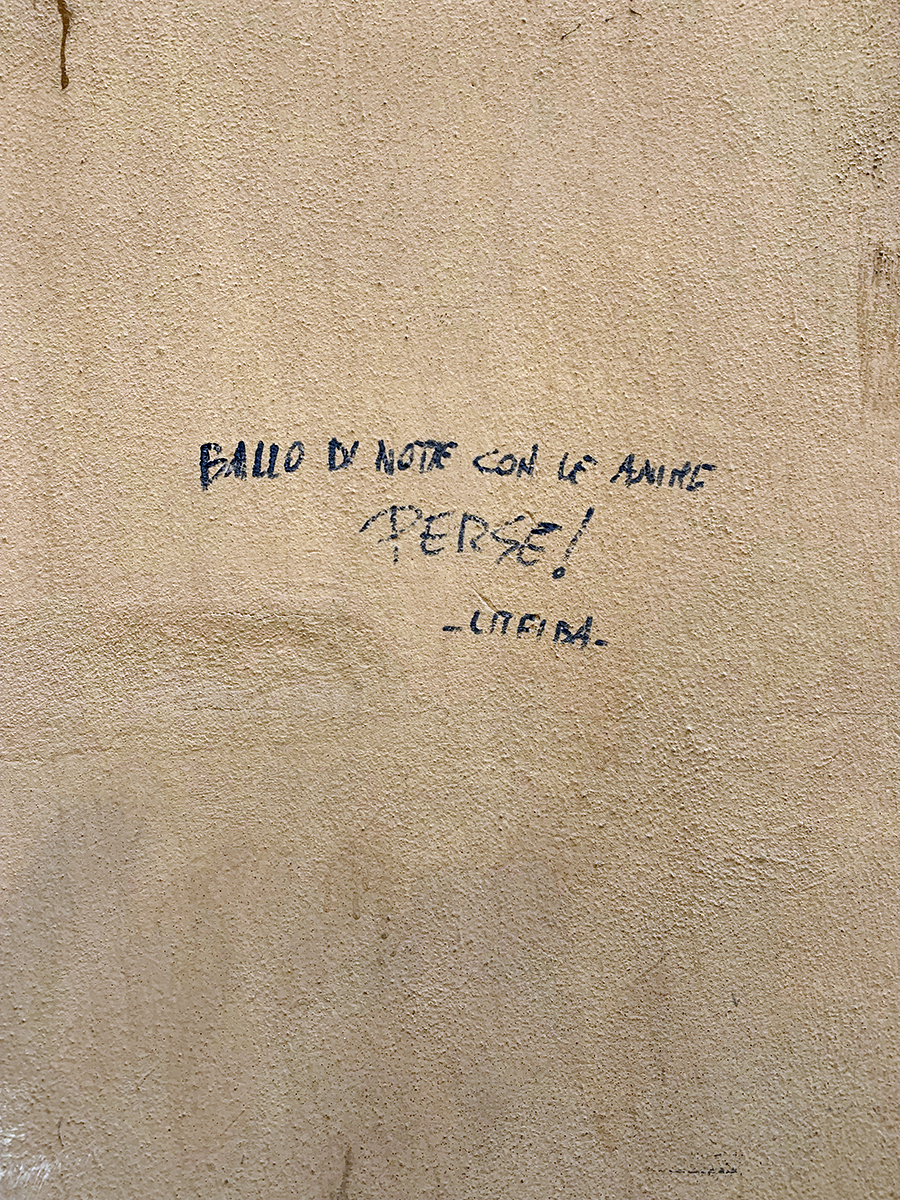 BALLO DI NOTTE CON LE ANIME
PERSE!
-LITFIBA-